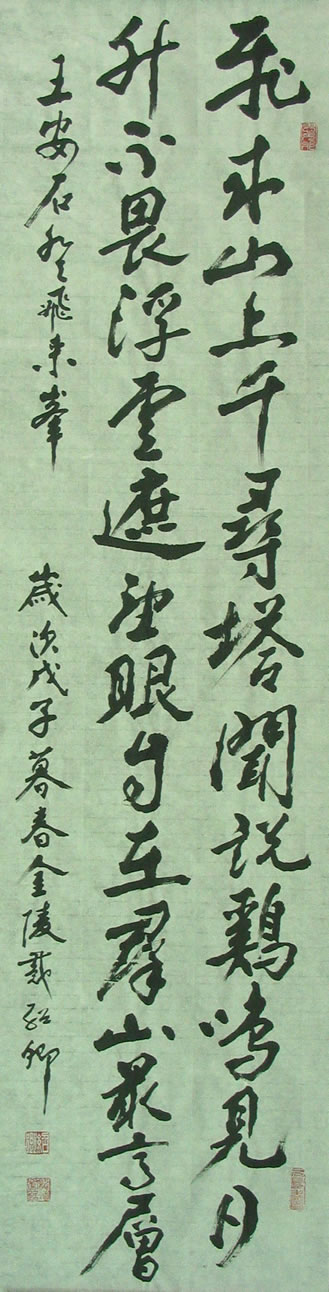 飛來山上千尋塔聞説鷄鳴見日
升不畏浮雲遮望眼自在羣山最高層
王安石登飛來峯
歲次戊子暮春金陵戴卿